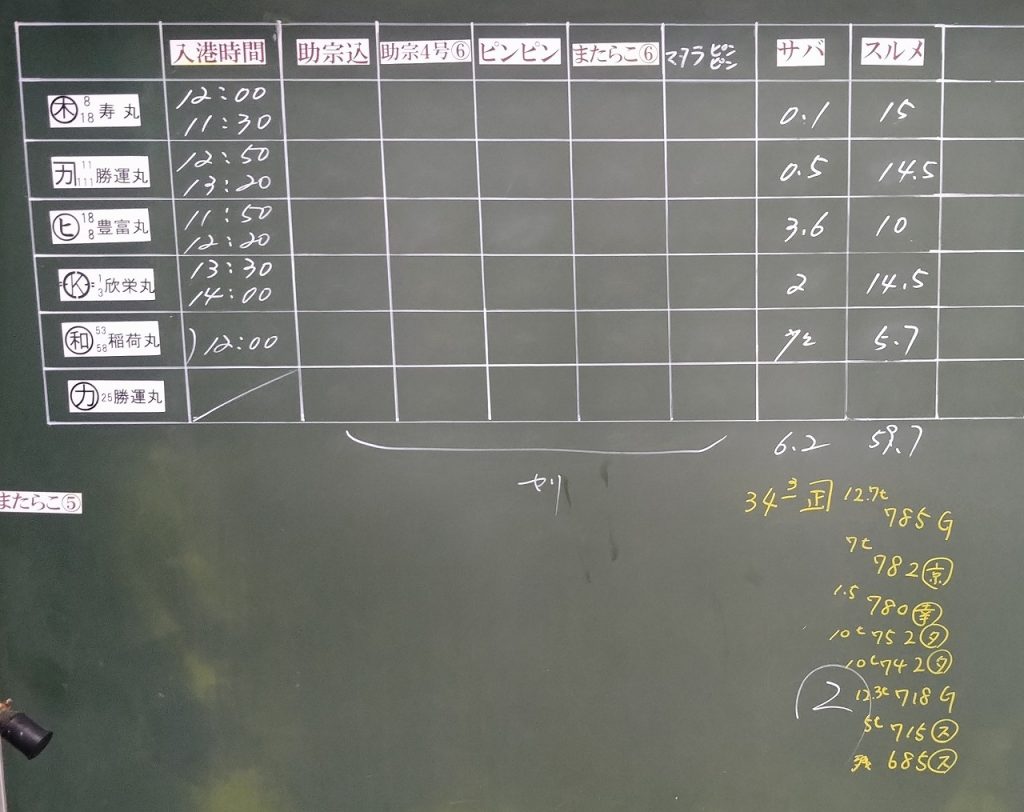 入港時間 助宗込 助宗4号⑥ ピンピン またらこ⑥ マダラピンピン サバ スルメ
木 8 18 寿丸 12:00 11:30 0.1 15
力 11 111 勝運丸 12:50 13:20 0.5 14.5
ヒ 18 8 豊富丸 11:50 12:20 3.6 10
K 1 3 欣栄丸 13:30 14:00 2 14.5
和 53 58 稲荷丸 12:00 5.7
力 25 勝運丸
6.2 59.7
セリ
またらこ⑤
34 正 12.7t
785 G
7t
782 京
1.5 780 幸
10t 752 タ
10t 742 タ
2 12.3t 718 G
5t 715 ス
残 685 ス